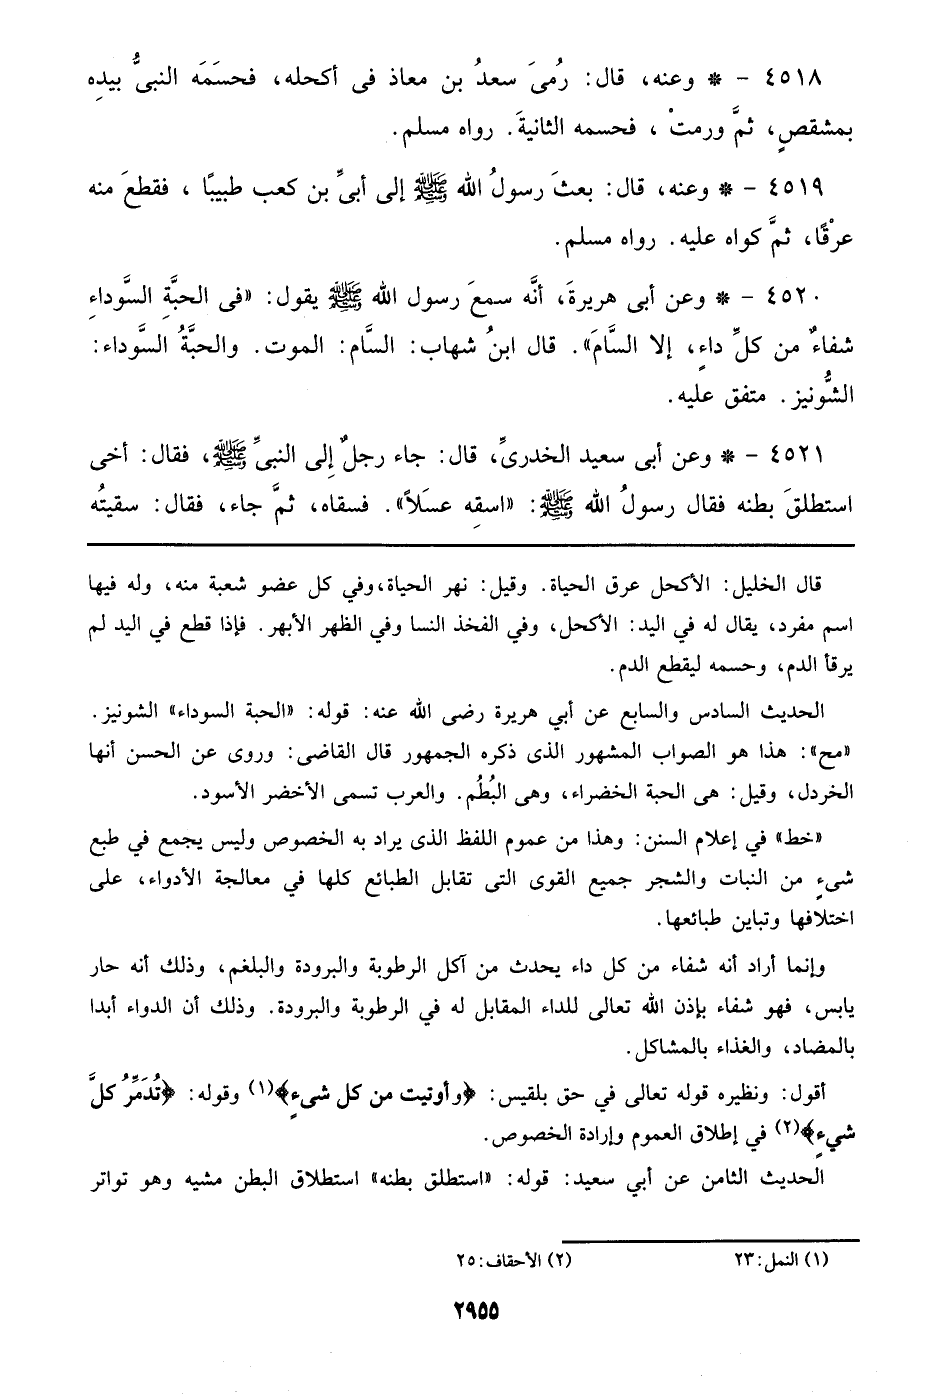 ٤٥١٨ - * وعنه، قال: رُمىَ سعدُ بن معاذ فى أكحله، فحسَمَه النبىُّ بيدِه
بمشقصٍ، ثمَّ ورمتْ، فحسمه الثانيةَ. رواه مسلم.
٤٥١٩ - * وعنه، قال: بعثَ رسولُ الله ﷺ إلى أبىِّ بن كعب طبيبًا، فقطعَ منه
عرْقًا، ثمَّ كواه عليه. رواه مسلم.
٤٥٢٠ - * وعن أبى هريرةَ، أنَّه سمعَ رسول الله ﷺ يقول: «فى الحبَّةِ السَّوداءِ
شفاءٌ من كلِّ داءٍ، إلا السَّامَ». قال ابنُ شهاب: السَّام: الموت. والحبَّةُ السَّوداء:
الشُّونيز. متفق عليه.
٤٥٢١ - * وعن أبى سعيد الخدرىِّ، قال: جاء رجلٌ إلى النبىِّ ﷺ، فقال: أخى
استطلقَ بطنه فقال رسولُ الله ﷺ: «اسقِه عسَلاً». فسقاه، ثمَّ جاء، فقال: سقيتُه
قال الخليل: الأكحل عرق الحياة. وقيل: نهر الحياة،وفي كل عضو شعبة منه، وله فيها
اسم مفرد، يقال له في اليد: الأكحل، وفي الفخذ النسا وفي الظهر الأبهر. فإذا قطع في اليد لم
يرقأ الدم، وحسمه ليقطع الدم.
الحديث السادس والسابع عن أبي هريرة رضى الله عنه: قوله: «الحبة السوداء» الشونيز.
«مح»: هذا هو الصواب المشهور الذى ذكره الجمهور قال القاضى: وروى عن الحسن أنها
الخردل، وقيل: هى الحبة الخضراء، وهى البُطُم. والعرب تسمى الأخضر الأسود.
«خط» في إعلام السنن: وهذا من عموم اللفظ الذى يراد به الخصوص وليس يجمع في طبع
شىءٍ من النبات والشجر جميع القوى التى تقابل الطبائع كلها في معالجة الأدواء، على
اختلافها وتباين طبائعها.
وإنما أراد أنه شفاء من كل داء يحدث من آكل الرطوبة والبرودة والبلغم، وذلك أنه حار
يابس، فهو شفاء بإذن الله تعالى للداء المقابل له في الرطوبة والبرودة. وذلك أن الدواء أبدا
بالمضاد، والغذاء بالمشاكل.
أقول: ونظيره قوله تعالى في حق بلقيس: ﴿وأوتيت من كل شىءٍ﴾(١) وقوله: ﴿تُدَمِّرُ كلَّ
شيءٍ﴾(٢) في إطلاق العموم وإرادة الخصوص.
الحديث الثامن عن أبي سعيد: قوله: «استطلق بطنه» استطلاق البطن مشيه وهو تواتر
(١) النمل:٢٣ (٢) الأحقاف:٢٥
٢٩٥٥